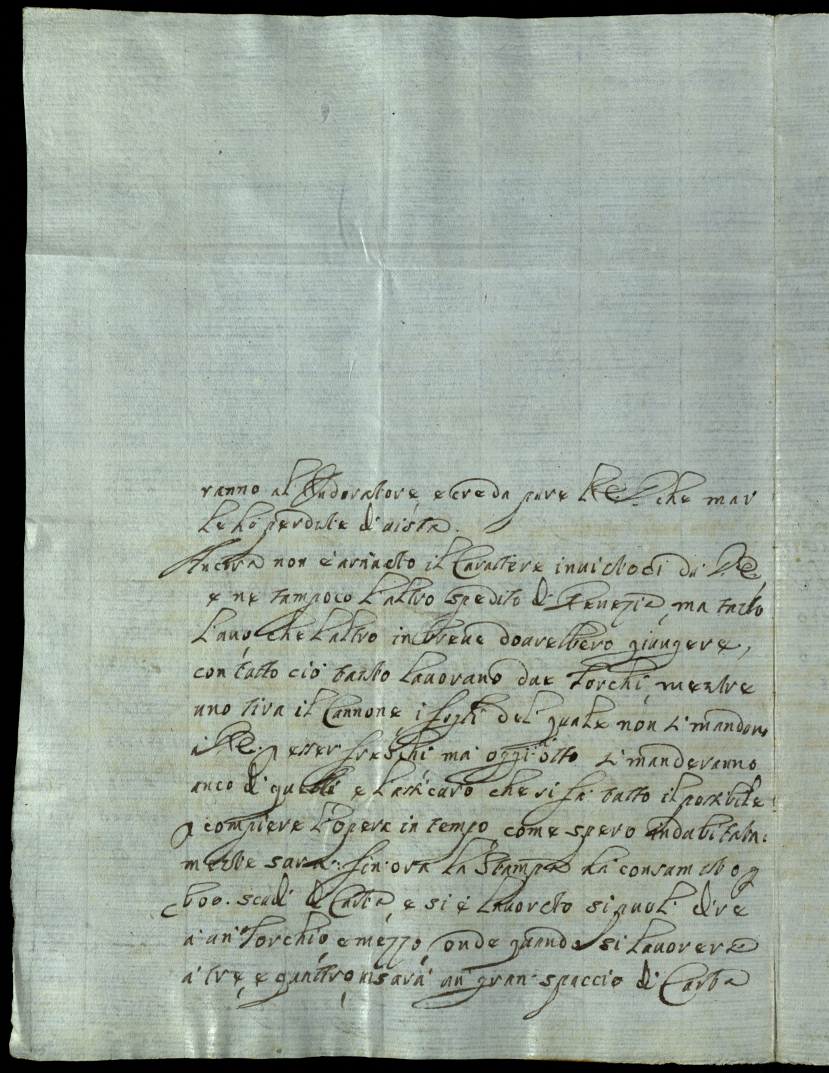 ranno al Indoratore, e creda pure V.E. che mai
le hò perdute di uista.
Ancora non è arriuato il Carattere inuiatoci da V.E,
e ne tampoco l'altro spedito di Venezia, ma tanto
l'uno che l'altro in breue dourebbero giungere,
con tutto ciò tanto lauorano due Torchi, mentre
uno tira il Cannone, i fogli del quale non si mandono
à V.E. p esser freschi, ma oggi otto si manderanno
anco di quelli e l'assicuro che si fà tutto il possibile
p compiere l'opera in tempo, come spero indubitata:
mente sarà: fin'ora la Stampa hà consumato p
600. scudi di Carta e si è lauorato si può dire
à un' Torchio e mezzo, onde quando si lauorerà
à trè, e quattro ui sarà un' gran spaccio di Carta